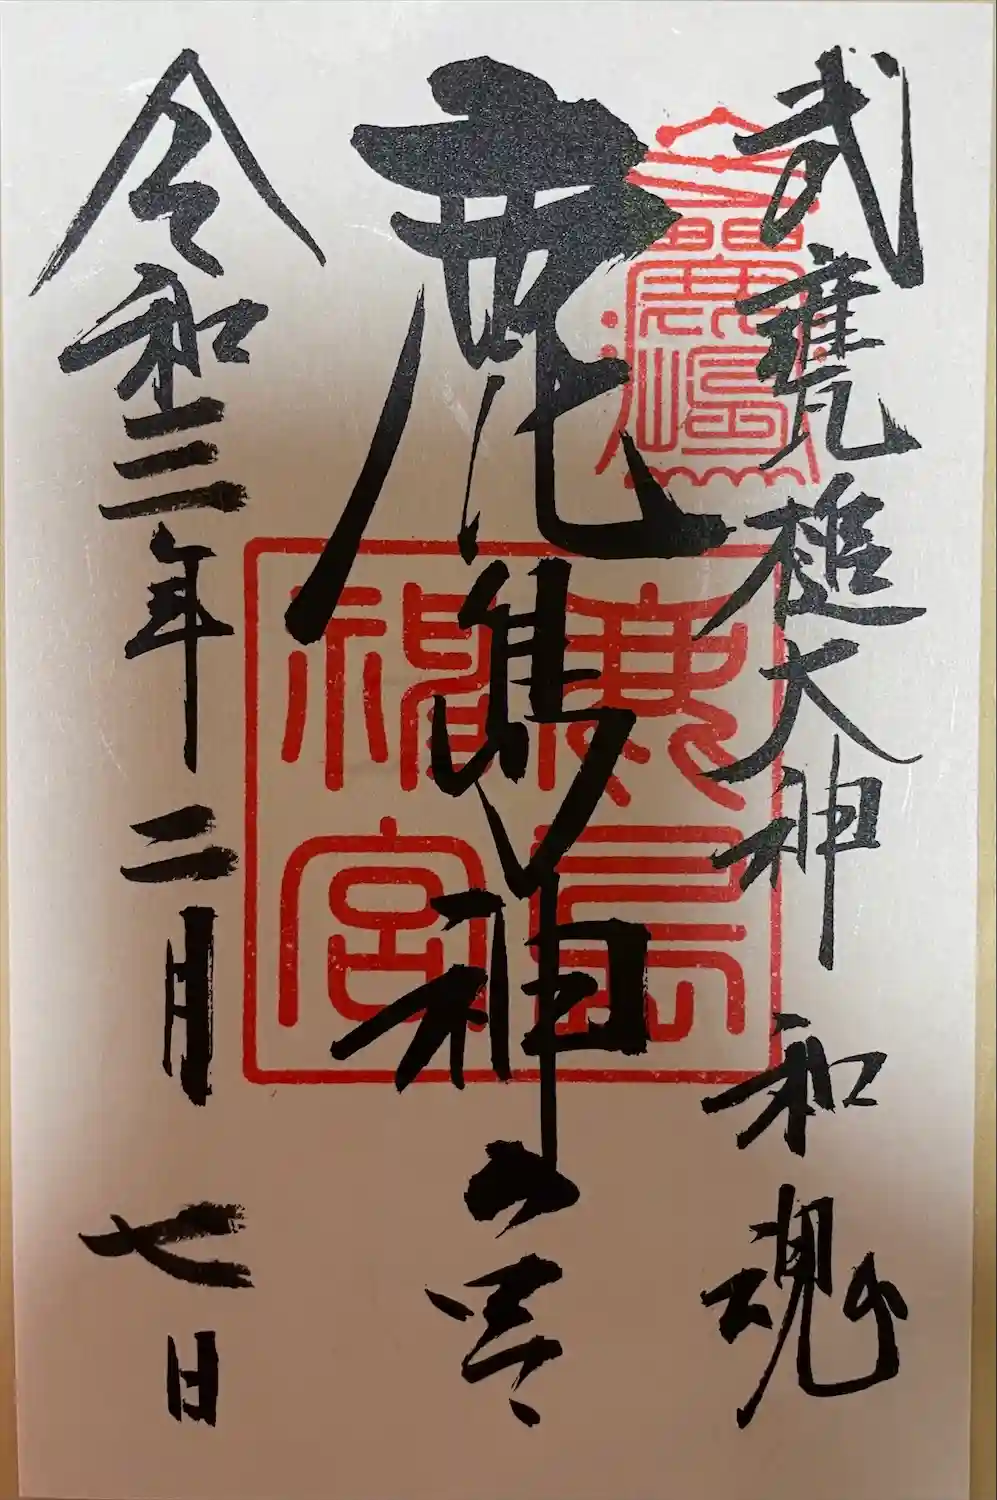 武甕槌大神 和魂
鹿島神宮
令和三年 二月 七日
鹿島
神宮